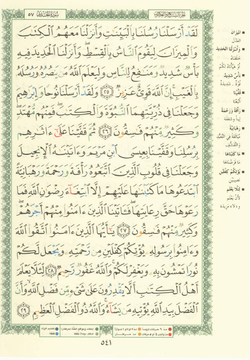 لَقَدْ أَرْسَلْنَا رُسُلَنَا بِالْبَيِّنَاتِ وَأَنزَلْنَا مَعَهُمُ الْكِتَابَ
وَالْمِيزَانَ لِيَقُومَ النَّاسُ بِالْقِسْطِ وَأَنزَلْنَا الْحَدِيدَ فِيهِ
بَأْسٌ شَدِيدٌ وَمَنَافِعُ لِلنَّاسِ وَلِيَعْلَمَ اللَّهُ مَن يَنصُرُهُ وَرُسُلَهُ
بِالْغَيْبِ إِنَّ اللَّهَ قَوِيٌّ عَزِيزٌ ٢٥ وَلَقَدْ أَرْسَلْنَا نُوحًا وَإِبْرَاهِيمَ
وَجَعَلْنَا فِي ذُرِّيَّتِهِمَا النُّبُوَّةَ وَالْكِتَابَ فَمِنْهُم مُّهْتَدٍ
وَكَثِيرٌ مِّنْهُمْ فَاسِقُونَ ٢٦ ثُمَّ قَفَّيْنَا عَلَىٰ آثَارِهِم
بِرُسُلِنَا وَقَفَّيْنَا بِعِيسَى ابْنِ مَرْيَمَ وَآتَيْنَاهُ الْإِنجِيلَ
وَجَعَلْنَا فِي قُلُوبِ الَّذِينَ اتَّبَعُوهُ رَأْفَةً وَرَحْمَةً وَرَهْبَانِيَّةً
ابْتَدَعُوهَا مَا كَتَبْنَاهَا عَلَيْهِمْ إِلَّا ابْتِغَاءَ رِضْوَانِ اللَّهِ فَمَا
رَعَوْهَا حَقَّ رِعَايَتِهَا فَآتَيْنَا الَّذِينَ آمَنُوا مِنْهُمْ أَجْرَهُمْ
وَكَثِيرٌ مِّنْهُمْ فَاسِقُونَ ٢٧ يَا أَيُّهَا الَّذِينَ آمَنُوا اتَّقُوا اللَّهَ
وَآمِنُوا بِرَسُولِهِ يُؤْتِكُمْ كِفْلَيْنِ مِن رَّحْمَتِهِ وَيَجْعَل لَّكُمْ
نُورًا تَمْشُونَ بِهِ وَيَغْفِرْ لَكُمْ وَاللَّهُ غَفُورٌ رَّحِيمٌ ٢٨ لِّئَلَّا يَعْلَمَ
أَهْلُ الْكِتَابِ أَلَّا يَقْدِرُونَ عَلَىٰ شَيْءٍ مِّن فَضْلِ اللَّهِ وَأَنَّ
الْفَضْلَ بِيَدِ اللَّهِ يُؤْتِيهِ مَن يَشَاءُ وَاللَّهُ ذُو الْفَضْلِ الْعَظِيمِ ٢٩
٥٤١